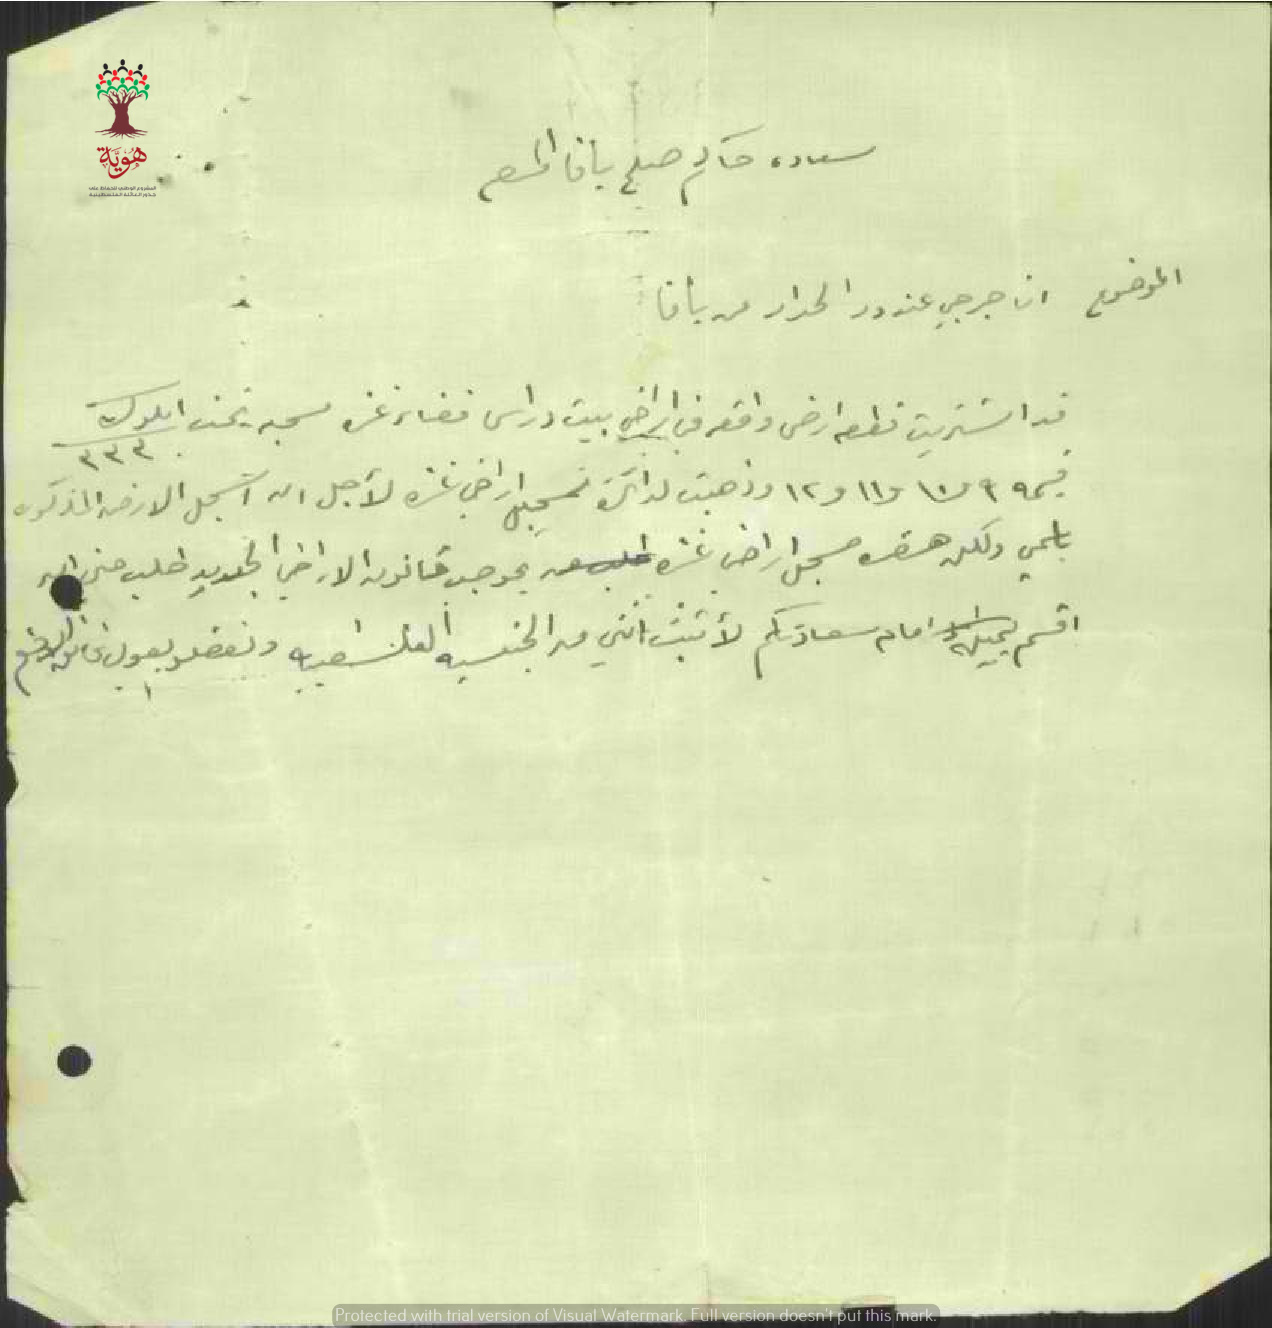 هوية
المشروع الوطني للحفاظ على
جذور العائلة الفلسطينية
سعادة حاكم صلح يافا
الموضوع انا جرجي غندور الحداد من يافا
قد اشتريت قطعه ارض واقعه في اراضي بيت دراس قضاء غزه مسجله تحت ابلوك
٣٣٣
قسيمه ٩ و ١٠ و ١١ و ١٢ وذهبت لدائرة تسجيل اراضي غزه لأجل ان اسجل الارض المذكوره
باسمي ولكن حضره مسجل اراضي غزه بموجب قانون الاراضي الجديد طلب مني ان
اقسم امام سعادتكم لأثبت انني من الجنسيه الفلسطينيه وتفضلو بقبول فائق
Protected with trial version of Visual Watermark. Full version doesn't put this mark.